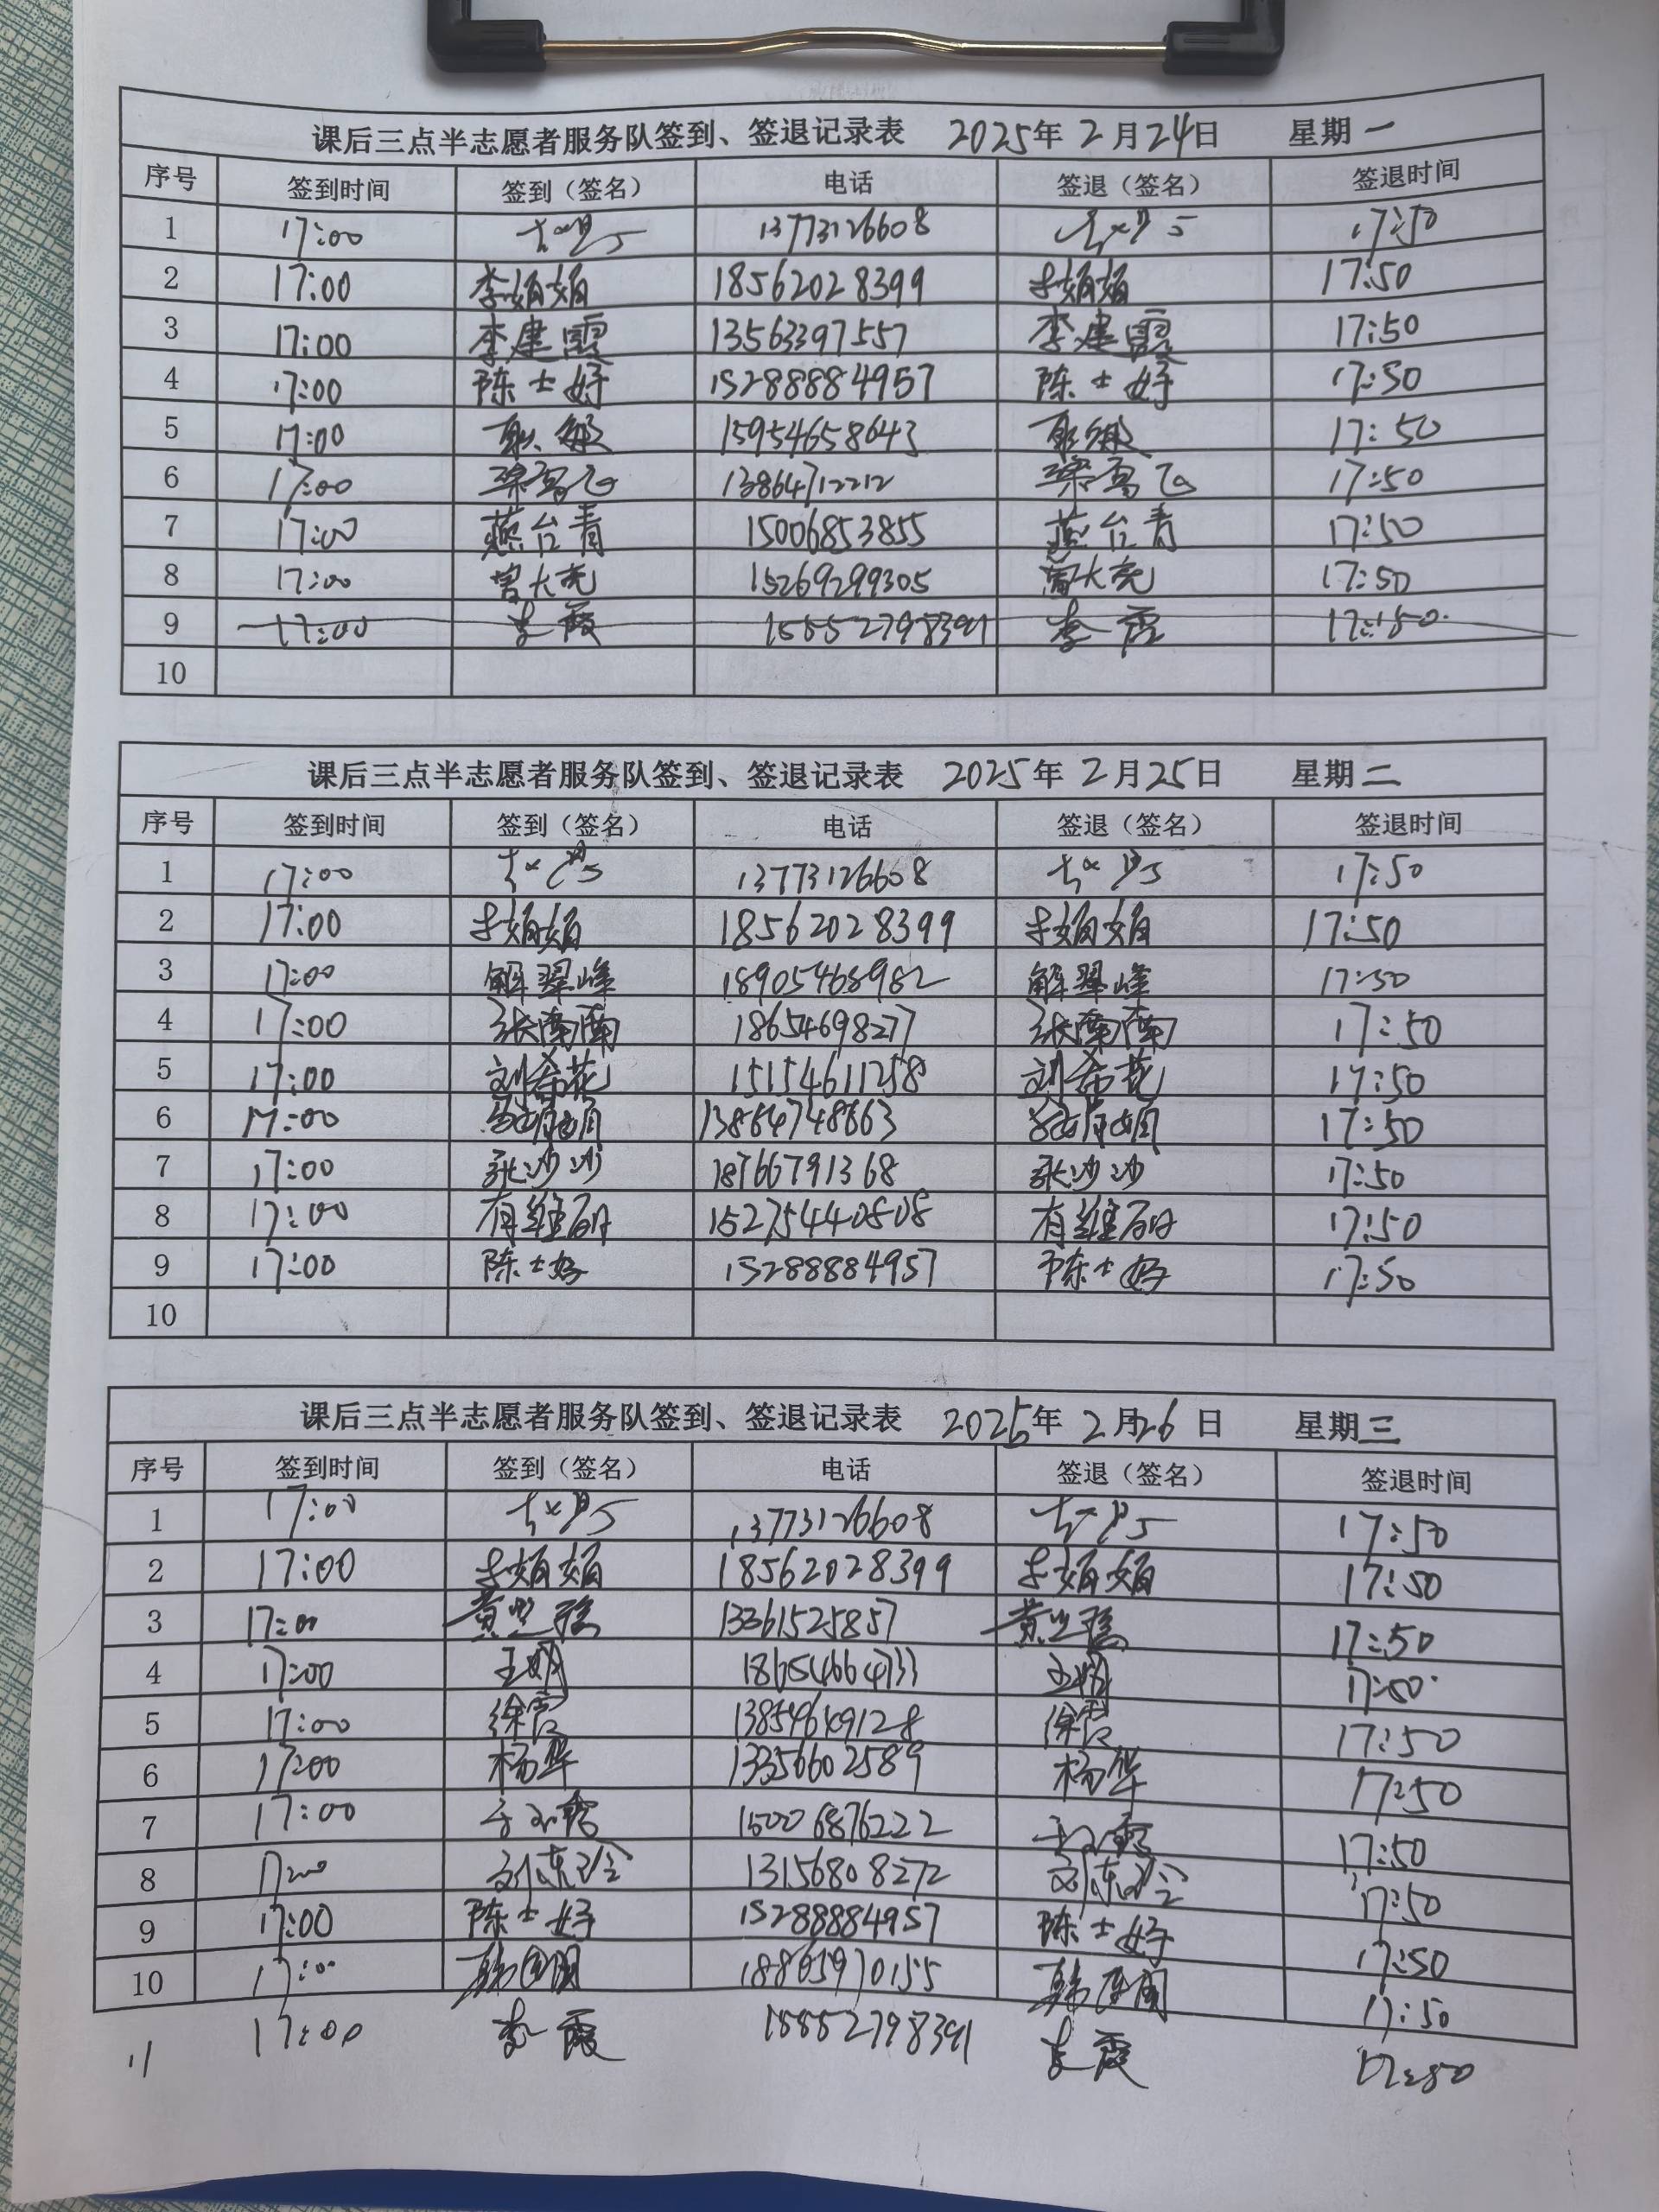 课后三点半志愿者服务队签到、签退记录表 2025年 2月24日 星期一
序号 签到时间 签到（签名） 电话 签退（签名） 签退时间
1 17:00 13773126608 17:50
2 17:00 李娟娟 18562028399 李娟娟 17:50
3 17:00 李建霞 13563397557 李建霞 17:50
4 17:00 陈士好 15288884957 陈士好 17:50
5 17:00 耿敏 15954658643 耿敏 17:50
6 17:00 梁高飞 13864712212 梁高飞 17:50
7 17:00 燕台青 15006853855 燕台青 17:50
8 17:00 曾大亮 15269299305 曾大亮 17:50
9 17:00 李霞 李霞 17:50
10
课后三点半志愿者服务队签到、签退记录表 2025年 2月25日 星期二
序号 签到时间 签到（签名） 电话 签退（签名） 签退时间
1 17:00 13773126608 17:50
2 17:00 李娟娟 18562028399 李娟娟 17:50
3 17:00 解翠峰 18905468982 解翠峰 17:50
4 17:00 张南南 18654698277 张南南 17:50
5 17:00 刘希花 15154611258 刘希花 17:50
6 17:00 13864748663 17:50
7 17:00 张沙沙 18766791368 张沙沙 17:50
8 17:00 有维 15275440808 有维 17:50
9 17:00 陈士好 15288884957 陈士好 17:50
10
课后三点半志愿者服务队签到、签退记录表 2025年 2月26日 星期三
序号 签到时间 签到（签名） 电话 签退（签名） 签退时间
1 17:00 13773126608 17:50
2 17:00 李娟娟 18562028399 李娟娟 17:50
3 17:00 黄 13361525857 黄 17:50
4 17:00 王娟 18654664733 王娟 17:50
5 17:00 徐霞 13854649128 徐霞 17:50
6 17:00 杨华 13356602589 杨华 17:50
7 17:00 15006876222 17:50
8 17:00 刘东玲 13156808272 刘东玲 17:50
9 17:00 陈士好 15288884957 陈士好 17:50
10 17:00 韩 18865970155 韩 17:50
11 17:00 李霞 15552798391 李霞 17:50